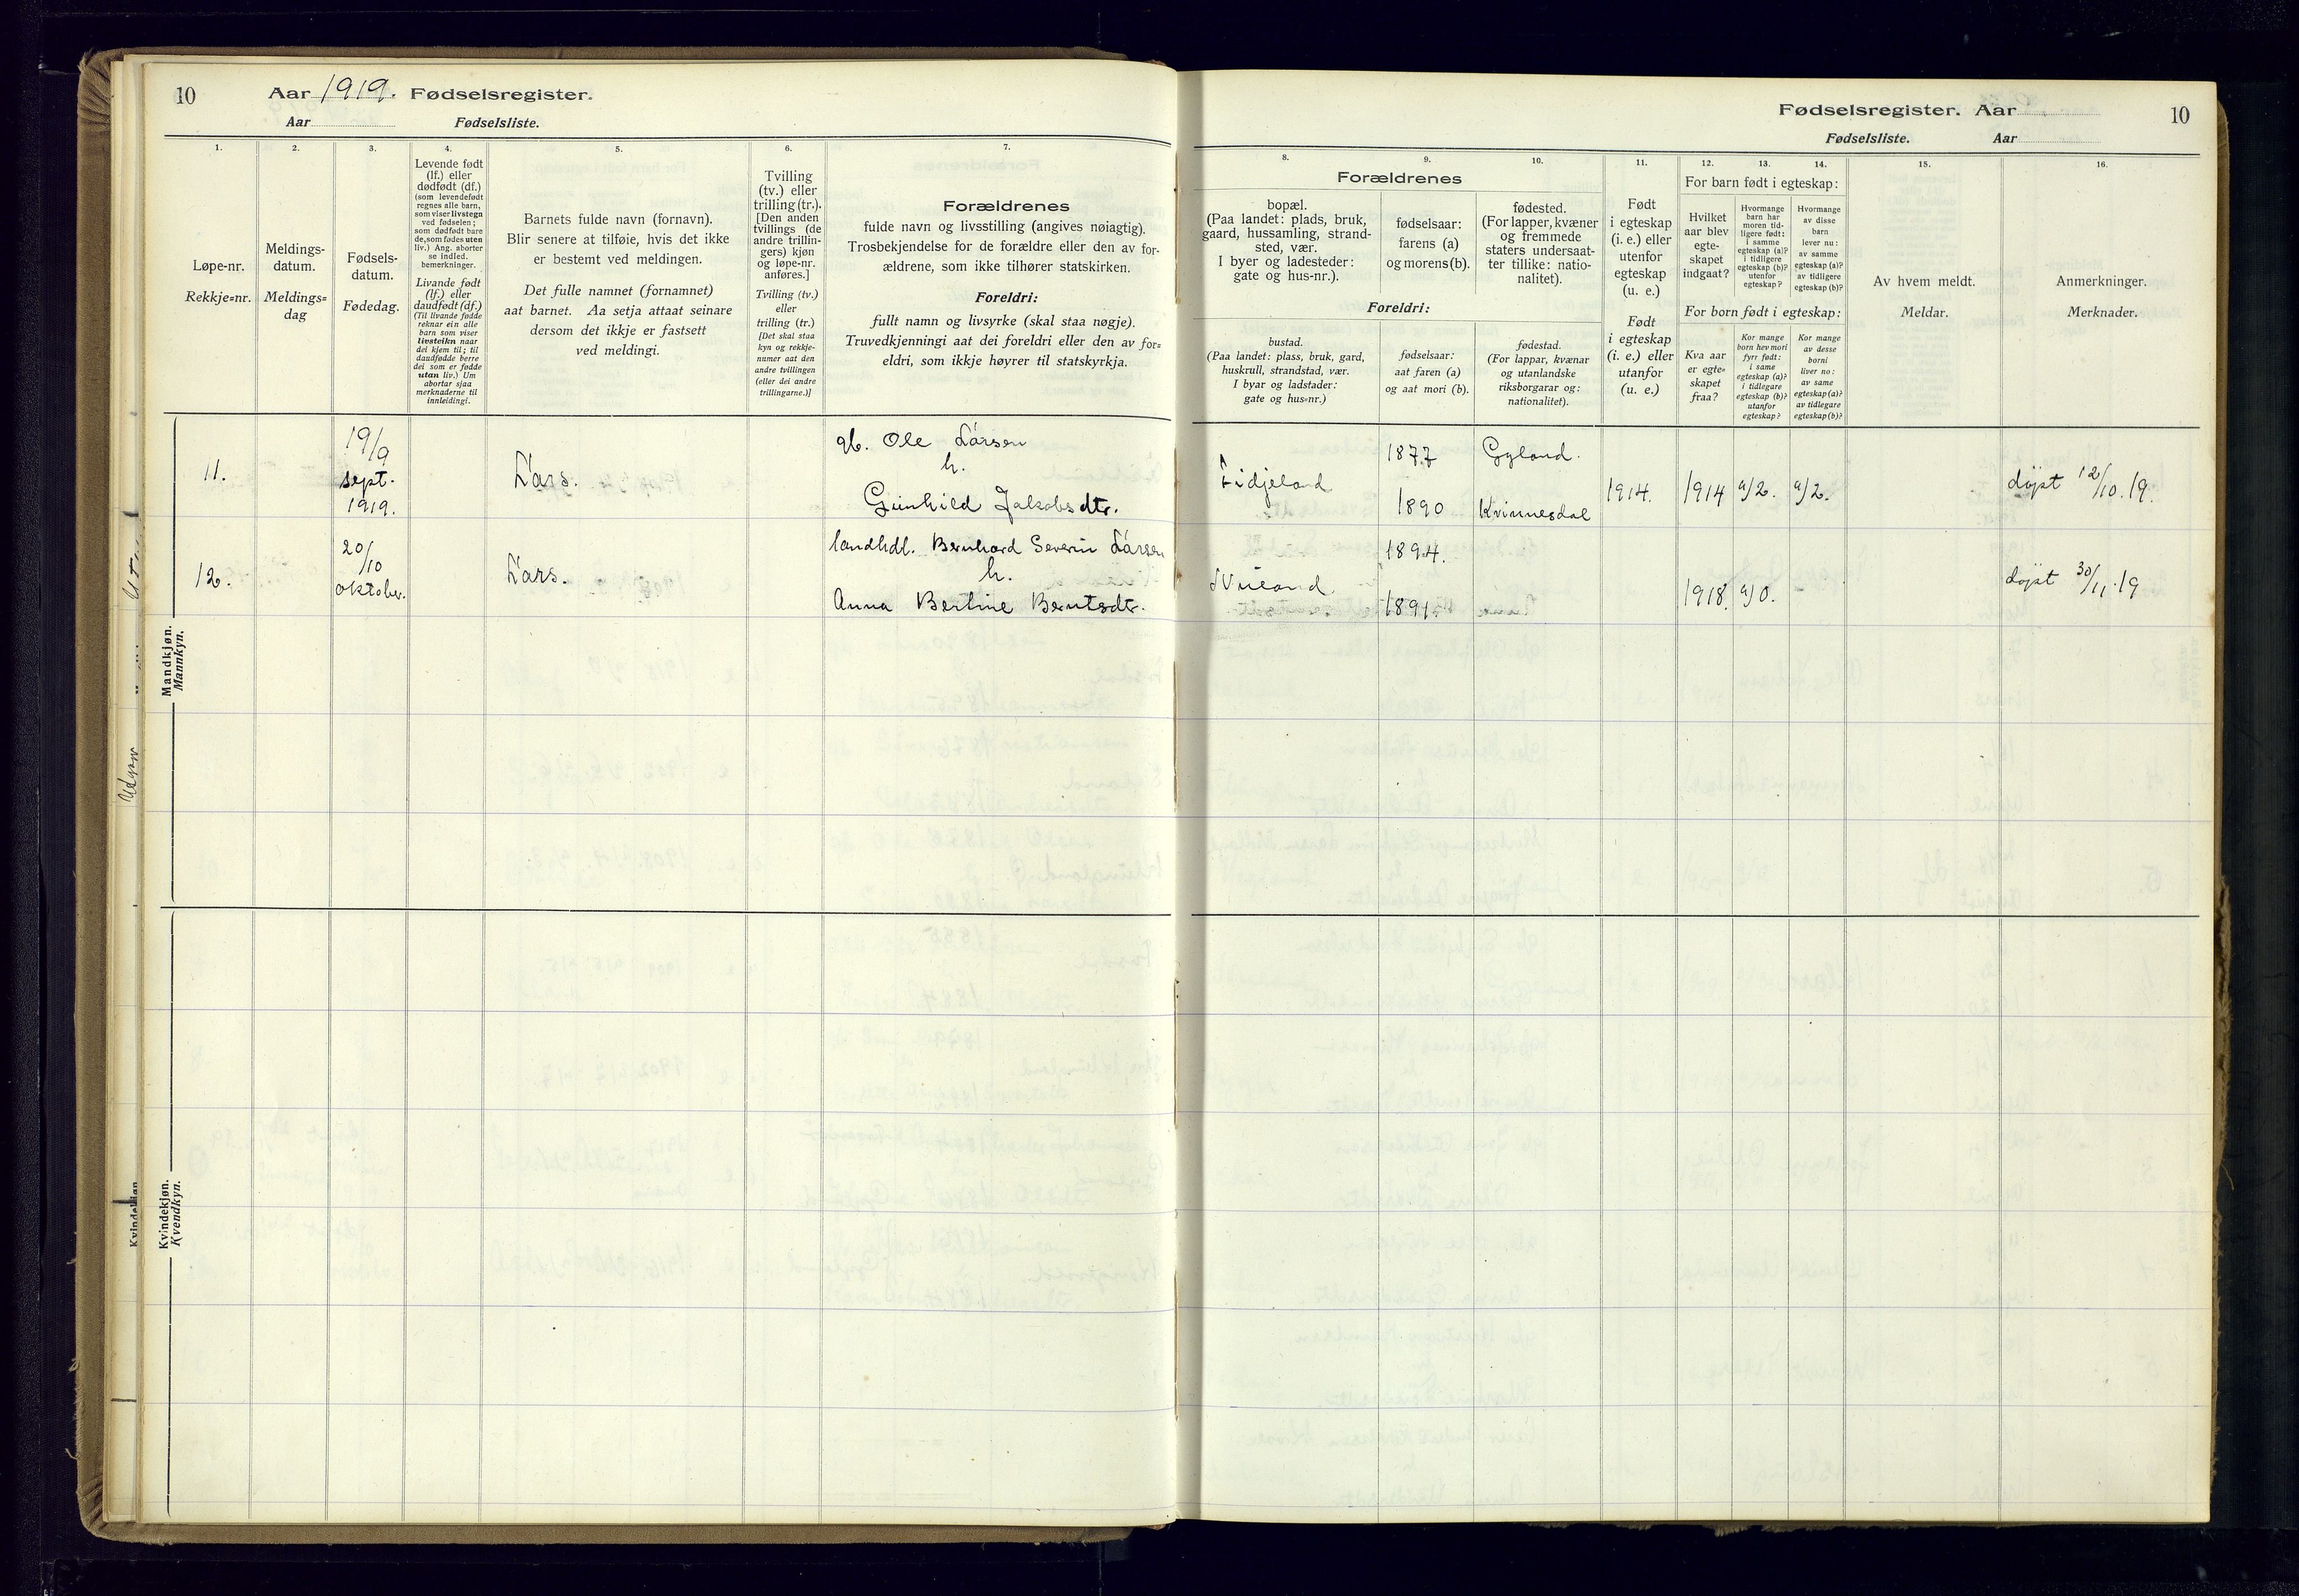 10 Aar 1919. Fødselsregister.
Aar Fødselsliste.
Fødselsregister. Aar 10
Fødselsliste. Aar
1.
Løpe-nr.
Rekkje=nr.
2.
Meldings-
datum.
Meldings=
dag
3.
Fødsels-
datum.
Fødedag.
4.
Levende født
(lf.) eller
dødfødt (df.)
(som levendefødt
regnes alle barn,
som viser livstegn
ved fødselen;
som dødfødt bare
de, som fødes uten
liv.) Ang. aborter
se indled.
bemerkninger.
Livande født
(lf.) eller
daudfødt (df.)
(Til livande fødde
reknar ein alle
born som viser
livsteikn naar
dei kjem til; til
daudfødde berre
dei som er fødde
utan liv.) Um
abortar sjaa
merknaderne til
innleidingi.
5.
Barnets fulde navn (fornavn).
Blir senere at tilføie, hvis det ikke
er bestemt ved meldingen.
Det fulle namnet (fornamnet)
aat barnet. Aa setja attaat seinare
dersom det ikkje er fastsett
ved meldingi.
6.
Tvilling
(tv.) eller
trilling (tr.).
[Den anden
tvillings (de
andre trillin-
gers) kjøn
og løpe-nr.
anføres.]
Tvilling (tv.)
eller
trilling (tr.)
[Det skal staa
kyn og rekkje-
numer aat den
andre tvillingen
(eller dei andre
trillingarne.)]
7.
Forældrenes
fulde navn og livsstilling (angives nøiagtig).
Trosbekjendelse for de forældre eller den av for-
ældrene, som ikke tilhører statskirken.
Foreldri:
fullt namn og livsyrke (skal staa nøgje).
Truvedkjenningi aat dei foreldri eller den av for=
eldri, som ikkje høyrer til statskyrkja.
Forældrenes
8.
bopæl.
(Paa landet: plads, bruk,
gaard, hussamling, strand-
sted, vær.
I byer og ladesteder:
gate og hus-nr.).
9.
fødselsaar:
farens (a)
og morens (b).
10.
fødested.
(For lapper, kvæner
og fremmede
staters undersaat-
ter tillike: natio-
nalitet).
Foreldri:
bustad.
(Paa landet: plass, bruk, gard,
huskrull, strandstad, vær.
I byar og ladstader:
gate og hus=nr.)
fødselsaar:
aat faren (a)
og aat mori (b).
fødestad.
(For lappar, kvænar
og utanlandske
riksborgarar og:
nationalitet).
11.
Født
i egteskap
(i. e.) eller
utenfor
egteskap
(u. e.)
Født
i egteskap
(i. e.) eller
utanfor
(u. e.)
12. 13. 14.
For barn født i egteskap:
Hvilket
aar blev
egte-
skapet
indgaat?
Hvormange
barn har
moren tid-
ligere født:
i samme
egteskap (a)?
i tidligere
egteskap (b)?
utenfor
egteskap?
Hvormange
av disse
barn
lever nu:
av samme
egteskap (a)?
av tidligere
egteskap (b)?
For born født i egteskap:
Kva aar
er egte=
skapet
fraa?
Kor mange
born hev mori
fyrr født:
i same
egteskap (a)?
i tidlegare
egteskap (b)?
utanfor
egteskap?
Kor mange
av desse
borni
liver no:
av same
egteskap (a)?
av tidlegare
egteskap (b)?
15.
Av hvem meldt.
Meldar.
16.
Anmerkninger.
Merknader.
Mandkjøn.
Mannkyn.
11. 19/9 sept. 1919. Lars.
gb. Ole Larsen
h.
Gunhild Jakobsdtr.
Fidjeland 1877 Gyland.
1890 Kvinnesdal
1914. 1914 a/2. a/2. døpt 12/10.19.
12. 20/10 oktober. Lars.
landhdl. Bernhard Severin Larsen
h.
Anna Bertine Berntsdtr.
1894.
1891. 1918. a/0. døpt 30/11.19
Kvindekjøn.
Kvendkyn.